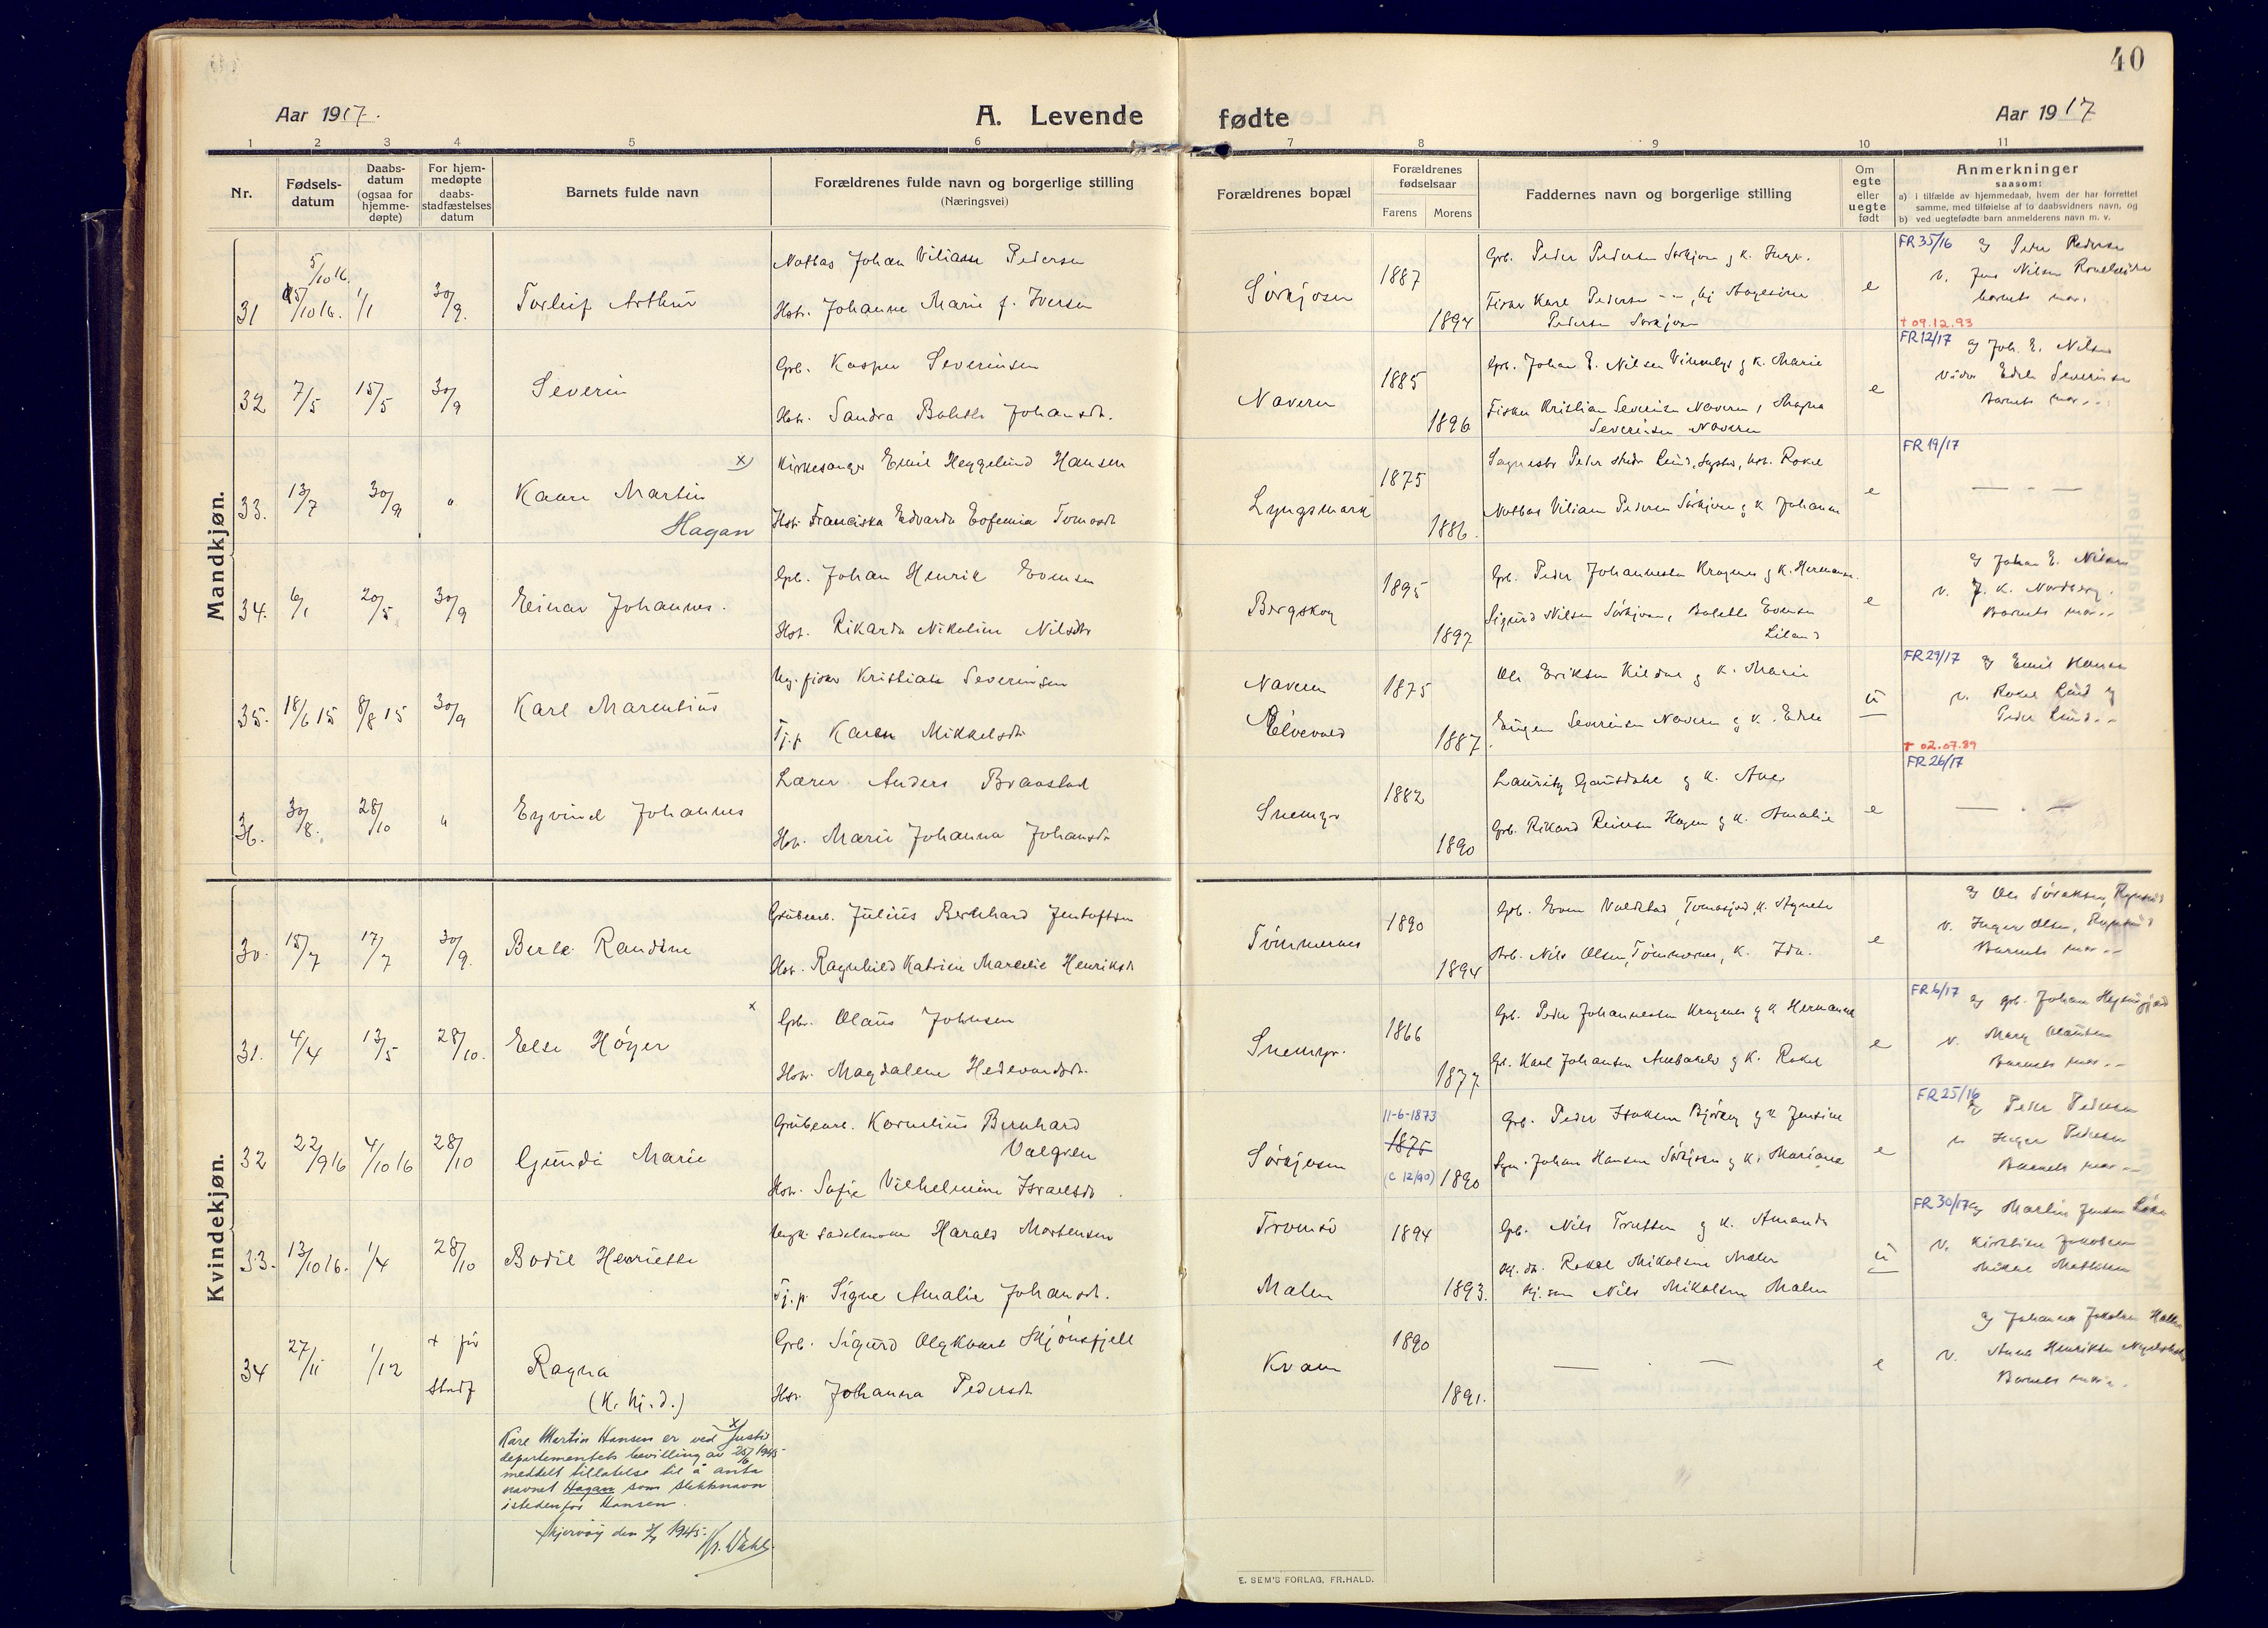 40
Aar 1917.
A. Levende
fødte
Aar 1917
1 2 3 4 5 6 7 8 9 10 11
Nr.
Fødsels-
datum
Daabs-
datum
(ogsaa for
hjemme-
døpte)
For hjem-
medøpte
daabs-
stadfæstelses
datum
Barnets fulde navn
Forældrenes fulde navn og borgerlige stilling
(Næringsvei)
Forældrenes bopæl
Forældrenes
fødselsaar
Farens Morens
Faddernes navn og borgerlige stilling
Om
egte
eller
uegte
født
Anmerkninger
saasom:
a) i tilfælde av hjemmedaab, hvem der har forrettet
samme, med tilføielse af to daabsvidners navn, og
b) ved uegtefødte barn anmelderens navn m. v.
Mandkjøn.
5/10 16.
31 10 16. 1/1 30/9. Torleif Arthur
Notbas Johan Viliam Pedersen
Hstr. Johanne Marie f. Iversen
Sørkjosen 1887 1894
Grb. Peder Pedersen Sørkjosen g k. Inger.
Fisker Karl Pedersen - - , Angesine
Pedersen Sørkjosen
e
FR 35/16 af Peder Pedersen
v. Jens Nilsen
barnets mor.
† 09.12.93
32 7/5 15/5 30/9 Severin
Grb. Kasper Severinsen
Hstr. Sandra Johansdt.
Naveren 1885 1896
Grb. Johan E. Nilsen g k. Marie
Fisker Kristian Severinsen Naveren, Magna
Severinsen Naveren
e
FR 12/17 af Joh. E. Nilsen
Severinsen
Barnets mor
33. 13/7 30/9 " Kaare Martin x)
Hagan
Kirkesanger Emil Heggelund Hansen
Hstr. Franciska Edvarda Eofemia Tomasdt
Lyngsmark 1875 1886.
Peder Lund, hst. Rakel
Notbas Viliam Pedersen Sørkjosen g k. Johanne
e
FR 19/17
— - —
34. 6/1 20/5 30/9 Einar Johannes.
Grb. Johan Henrik Evensen
Hst. Rikarda Nikoline Nilsdtr
Bergskog 1895 1897
Grb. Peder Johannesen Kragenes g k. Hermanse.
Sigurd Nilsen Sørkjosen, Evensen
Liland
e
af Johan E. Nilsen
v. J. K. Nordberg.
Barnets mor
35. 18/6 15 8/8 15 30/9 Karl Marentius
Ug. fisker Kristian Severinsen
Tj.p. Karen Mikkelsdt.
Naveren
Elvevold
1875 1887
Ole Eriksen Kildal g k. Marie
Eugen Severinsen Naveren g k.
u
FR 29/17 af Emil Hansen
v. Rakel Lund og
Peder Lund
† 02.07.89
36. 30/8. 28/10 " Eyvind Johannes
Lærer Anders Braastad
Hst. Marie Johanna Johansdt
Snemyr 1882 1890
Lauritz Gausdahl g k.
Grb. Rikard Reiersen Hagen g k. Amalie
e
FR 26/17
— . —
Kvindekjøn.
30. 15/7 17/7 30/9. Berle Randine
Grubearb. Julius Bernhard Jentoftsen
Hstr. Ragnhild Katrine Marselie Henriksdt
Tømmernes 1890 1894
Grb. Even Valdstad, k. Agnete
Arb. Nils Olsen, Tømmernes, k. Ida.
e
af Ole Sørensen
v. Inger Olsen
Barnets mor
31. 4/4 13/5 28/10. Else Høyer x
Grbr. Olaus Johnsen
Hstr. Magdalene Hedevardsdt.
Snemyr. 1866 1877
Grb. Peder Johannesen Kragenes g k Hermanse
Gb. Karl Johansen g k. Rakel
e
FR 6/17 af grb. Johan
v. Mary Olausen
Barnets mor
32 22/9 16 4/10 16 28/10 Gunda Marie
Grubearb. Kornelius Bernhard
Valgren
Hstr. Sofie Vilhelmine Israelsdt.
Sørkjosen 11-6-1873 1875 (C 12/90) 1890
Grb. Peder Isaksen Bjørkeng g k Jensine
Johan Hansen Sørkjosen g k. Mariane
e
FR 25/16 af Peder Pedersen
v. Inger Pedersen
Barnets mor
33. 13/10 16. 1/4 28/10 Bodil Henriette
Ungk. sadelmaker Harald Mortensen
Tj.p. Signe Amalie Johansdt.
Tromsø
Malen
1894 1893.
Grb. Nils Trulsen g k. Amanda
Rakel Mikalsen Malen
Gj. søn Nils Mikalsen Malen
u
FR 30/17 af Martin Jensen
v. Kirstine Jakobsen
Mikal Mathisen
34 27/11 1/12 + før
stadf
Ragna
(K. hj. d.)
Grb. Sigurd Olgkvart Skjønsfjell
Hstr. Johanna Pedersdt
Kvam 1890 1891.
— . —
e
af Johanna Jakobsen
v. Anna Henriksen
Barnets mor
x)
Kare Martin Hansen er ved Justis
departementets bevilling av 25/6 1945
meddelt tillatelse til å anta
navnet Hagan som slektsnavn
istedenfor Hansen.
Skjervøy den 3/7 1945.
Kr. Dahl
E. SEM'S FORLAG, FR.HALD.